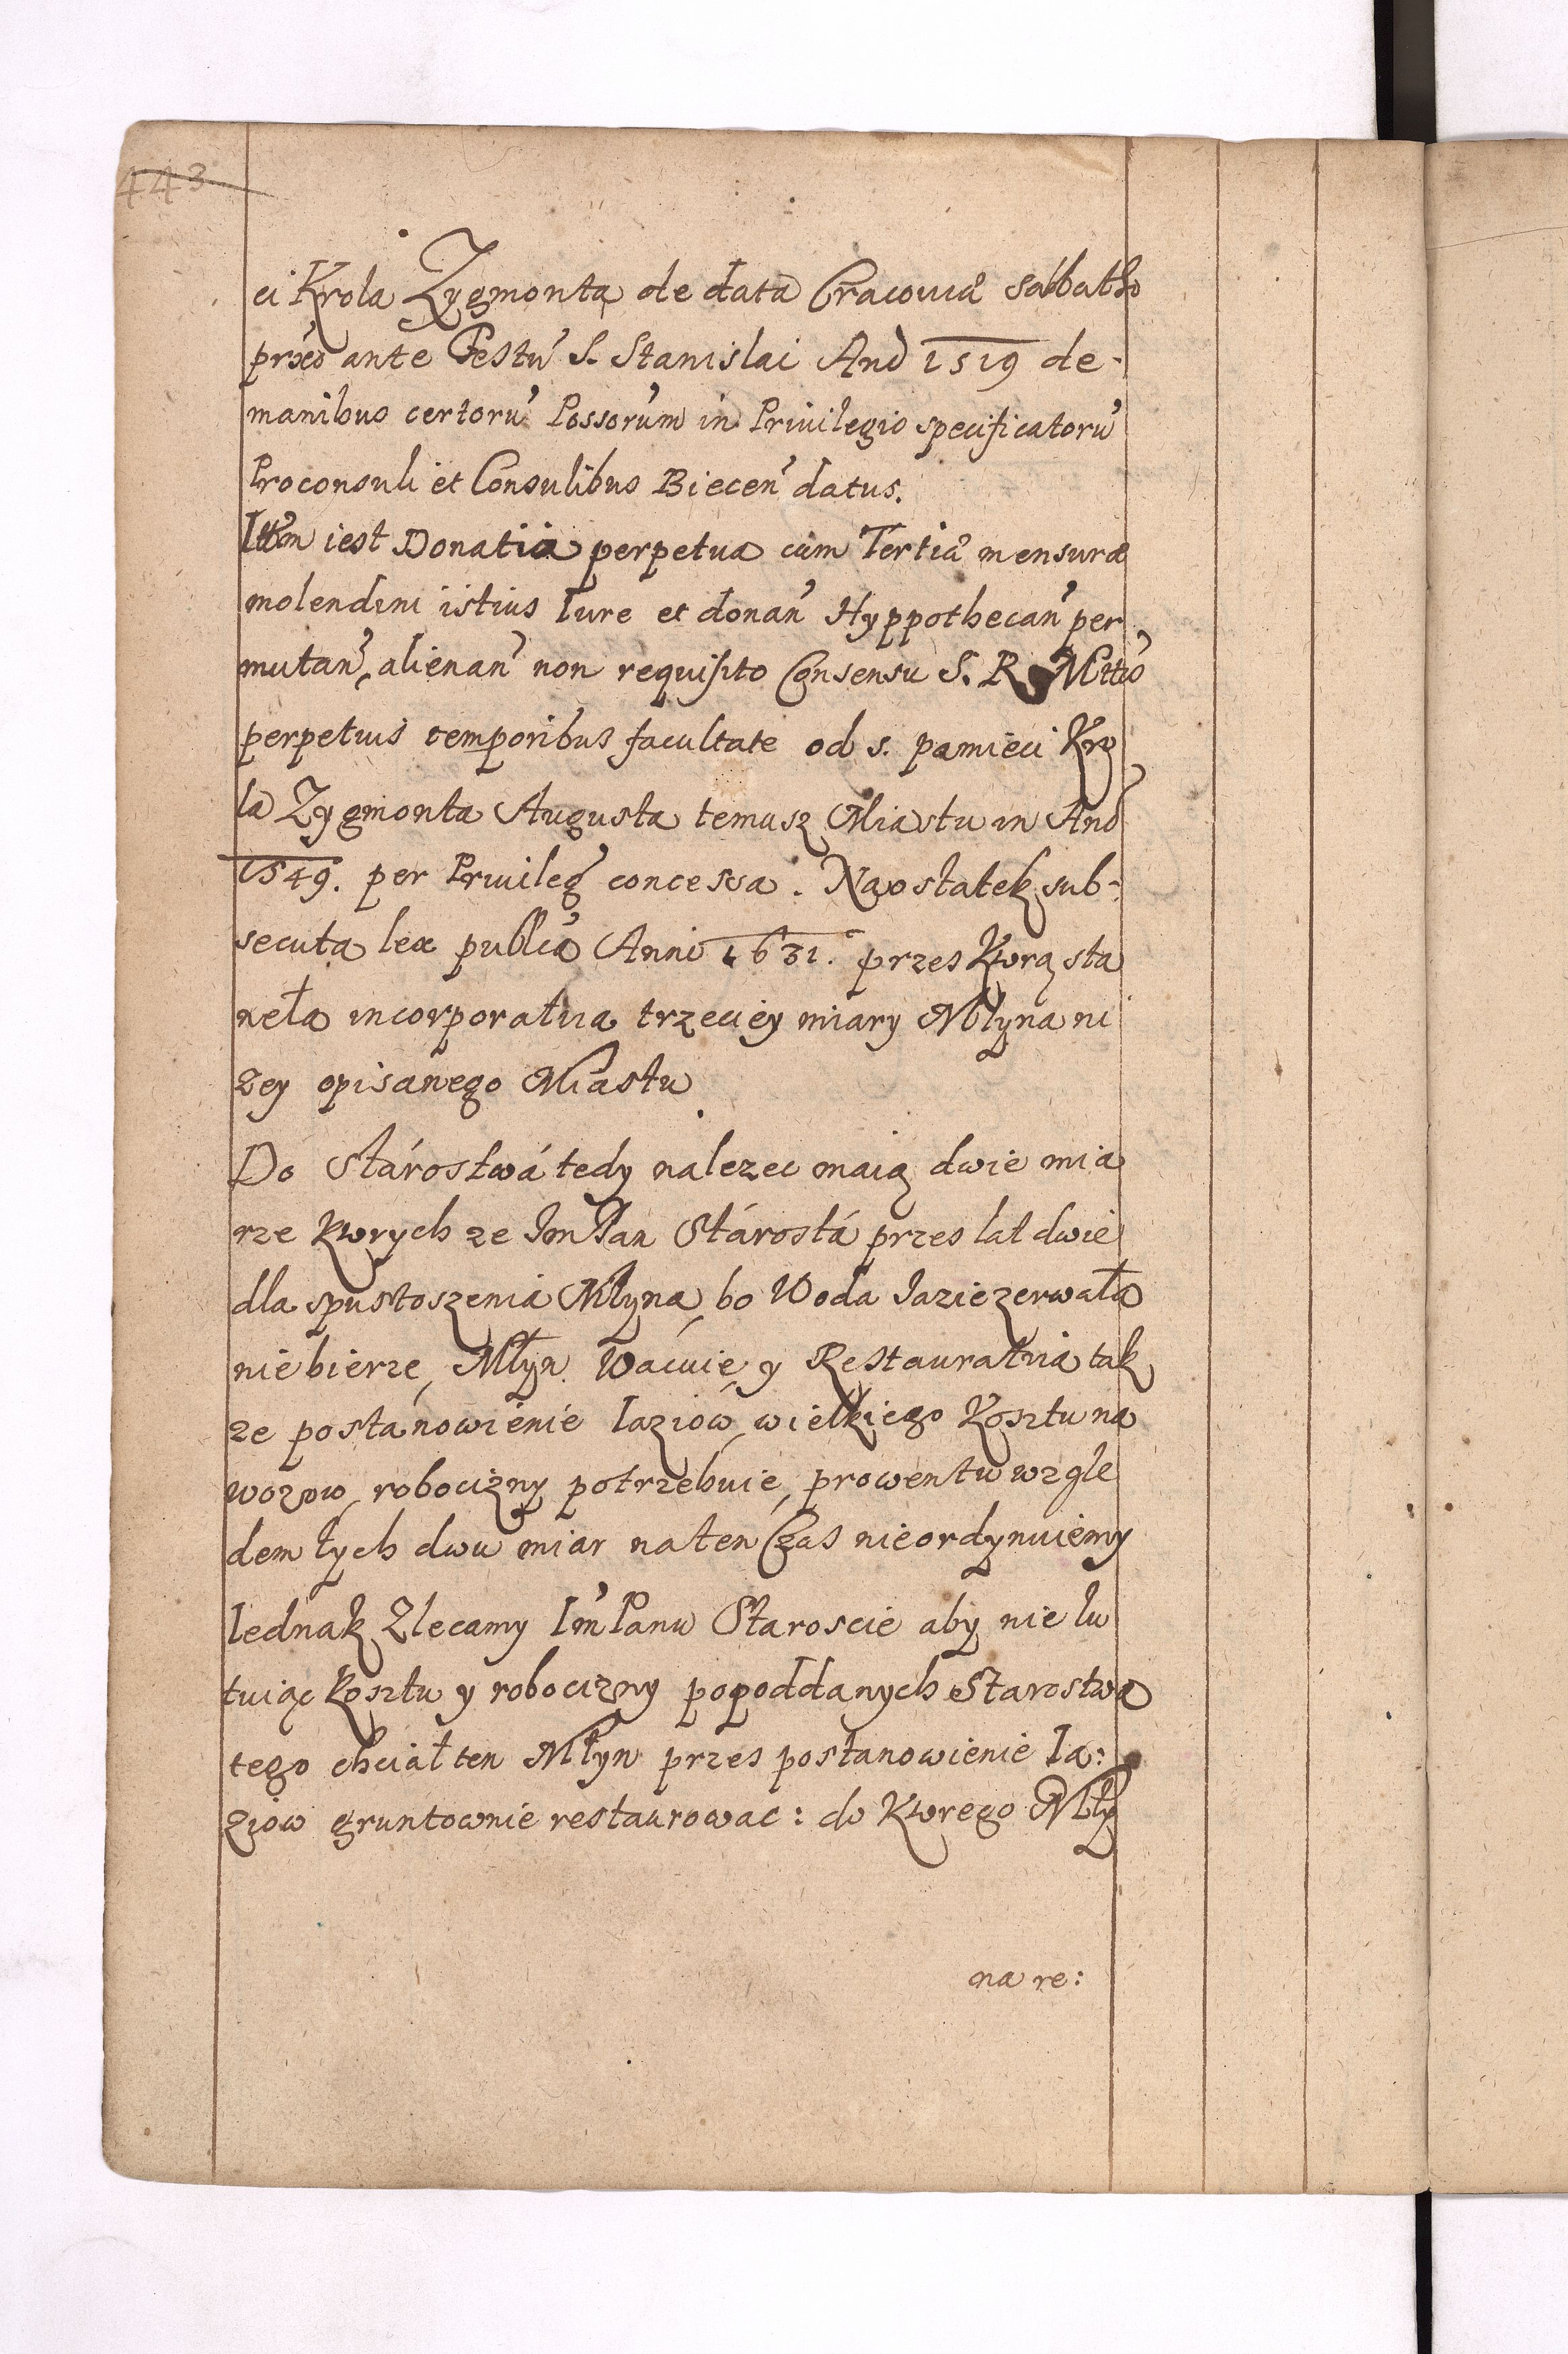 443
ci Krola Zygmonta de data Cracouiæ sabbatho
ante Festu S. Stanislai Ano 1519 de-
manibus certoru Possorum in Priuilegio specificatoru
Proconsuli et Consulibus Biecen datus.
Item iest Donatia perpetua cum Tertia mensuræ
molendini istius Iure et donan Hyppothecan per
mutan, alienan non requisito Consensu S. R. Mttis
perpetuis temporibus facultate od s. pamieci Kro
la Zygmonta Augusta temusz Miastu in Ano
1549. per Priuileg concessa. Naostatek sub-
secuta lex publica Anni 1631. przes Ktorą sta
neła incorporatia trzeciey miary Młyna ni
zey opisanego Miastu
Do Stárostwá tedy nalezec maią dwie mia
rze Ktorych ze Jm Pan Stárostá przes lat dwie
dla spustoszenia Młyna, bo Woda Jazie zerwała
nie bierze, Młyn Wacuie, y Restauratia tak
ze postánowienie Iaziow, wielkiego Kosztu na
wozow, robocizny potrzebuie, prowentu wzgle
dem tych dwu miar na ten Czas nieordynuiemy
Iednak Zlecamy Im Panu Staroscie aby nie lu
tuiąc Kosztu y robocizny popoddanych Starostwa
tego chciał ten Młyn przes postanowienie Ia:
ziow gruntownie restaurowac: do Ktorego Mły
na re: